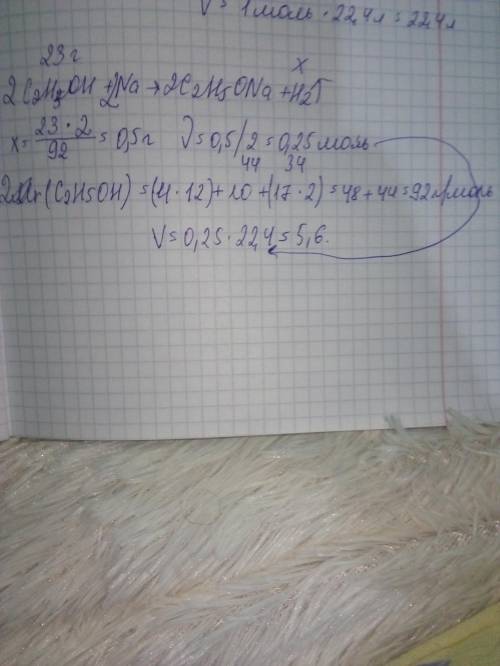 V = 1 моль · 22,4 л = 22,4 л
23 г
x
2C2H5OH + 2Na → 2C2H5ONa + H2↑
x = 23 · 2 / 92 = 0,5 г V = 0,5/2 = 0,25 моль
44 34
2Mr(C2H5OH) = (4 · 12) + 10 + (17 · 2) = 48 + 44 = 92 г/моль
V = 0,25 · 22,4 = 5,6.